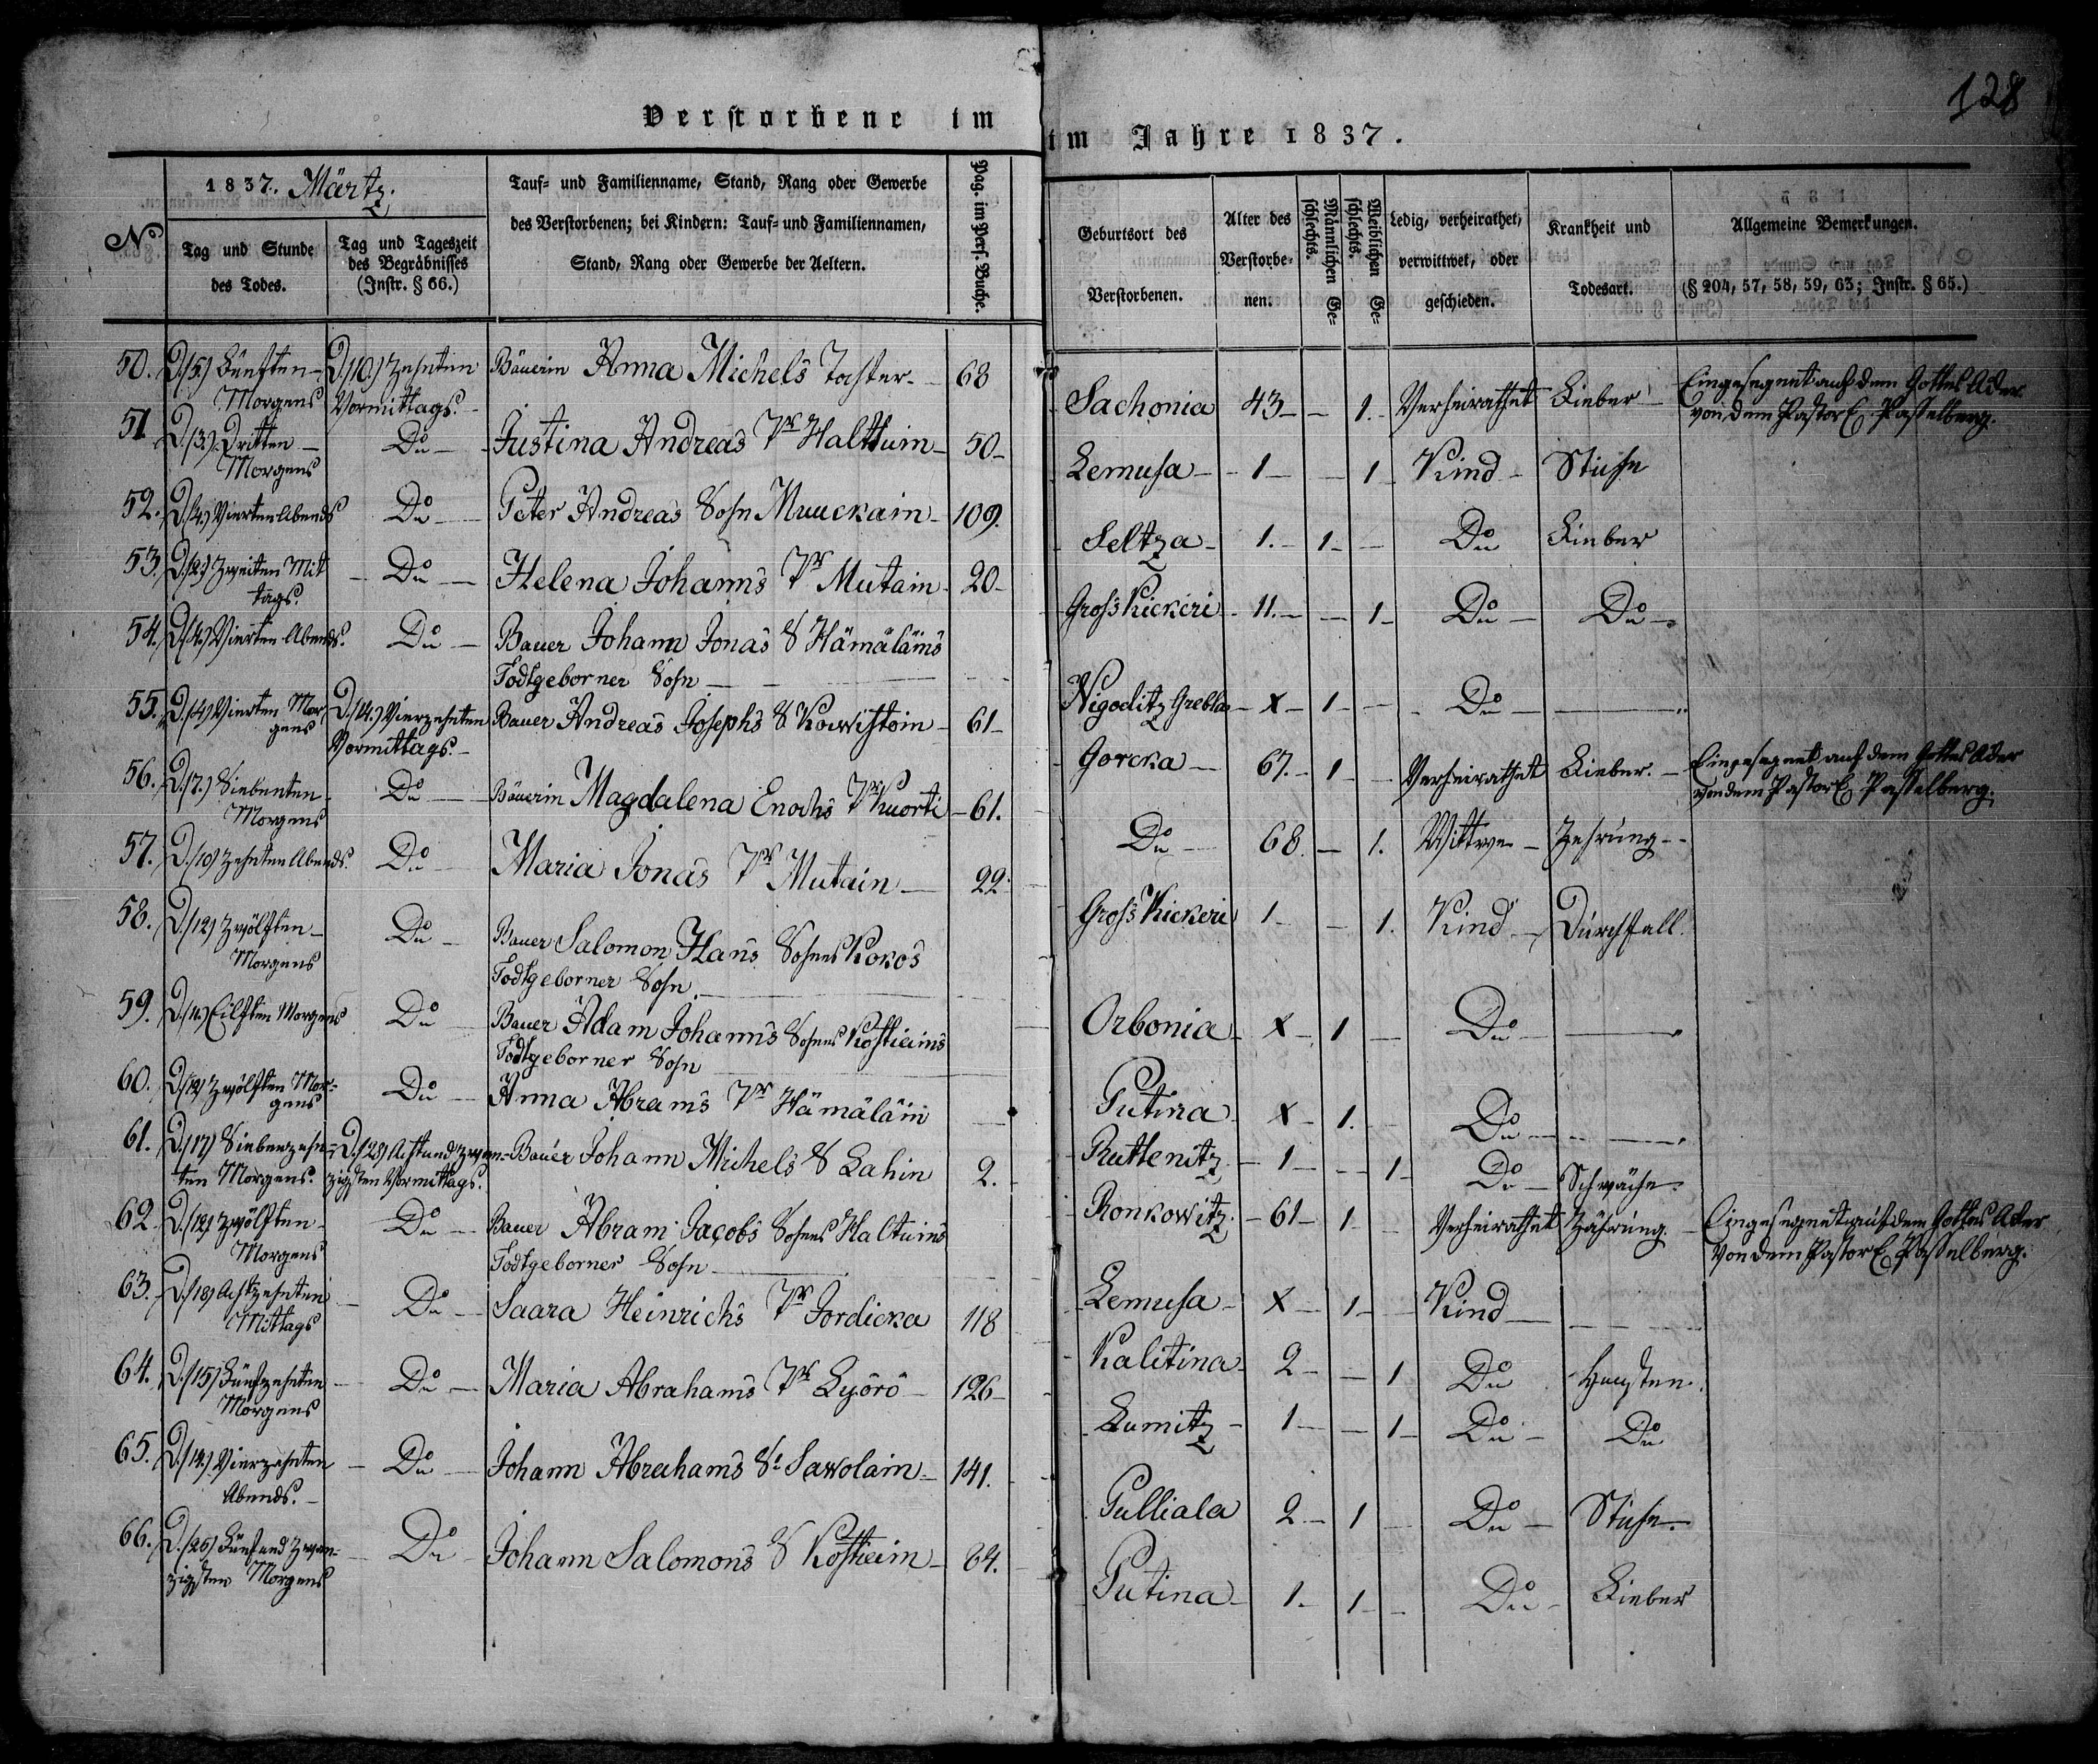 128
Verstorbene im
im Jahre 1837.
No
1837. Märtz.
Tag und Stunde
des Todes.
Tag und Tageszeit
des Begräbnisses
(Instr. § 66.)
Tauf- und Familienname, Stand, Rang oder Gewerbe
des Verstorbenen; bei Kindern: Tauf- und Familiennamen,
Stand, Rang oder Gewerbe der Aeltern.
Pag. im Pers. Buche.
Geburtsort des
Verstorbenen.
Alter des
Verstorbe-
nen.
Männlichen Ge-
schlechts.
Weiblichen Ge-
schlechts.
Ledig, verheirathet,
verwittwet, oder
geschieden.
Krankheit und
Todesart.
Allgemeine Bemerkungen.
(§ 204, 57, 58, 59, 63; Instr. § 65.)
50. D. (5.) Fünften Morgens D. (10.) Zehnten Vormittags. Bäuerin Anna Michels Tochter 68 Sachonia 43 1. Verheirathet Fieber Eingesegnet auf dem Gottes Acker
von dem Pastor E. Passelberg.
51 D. (3.) Dritten Morgens Do Justina Andreas Tr Haltuin 50 Lemusa 1 1 Kind Stiche
52. D. (4.) Vierten Abends Do Peter Andreas Sohn Muuckain 109. Seltza 1. 1 Do Fieber
53. D. (2.) Zweiten Mittags. Do Helena Johanns Tr Mutain 20 Gross Kickeri 11. 1 Do Do
54. D. (4.) Vierten Abends. Do Bauer Johann Jonas S Hämäläins
Todtgeborner Sohn Nigoditz Grebla X 1 Do
55. D. (4) Vierten Morgens D. (14.) Vierzehnten Vormittags. Bauer Andreas Josephs S Kowistoin 61 Gorcka 67. 1 Verheirathet Fieber. Eingesegnet auf dem Gottes Acker
von dem Pastor E. Passelberg.
56. D. (7.) Siebenten Morgens Do Bäuerin Magdalena Enochs Tr Kuorti 61. Do 68. 1. Wittwe Zehrung
57. D. (10) Zehnten Abends. Do Maria Jonas Tr Mutain 22. Gross Kickeri 1 1. Kind Durchfall.
58. D. (12) Zwölften Morgens Do Bauer Salomon Hans Sohnes Kokos
Todtgeborner Sohn. Orbonia X 1 Do
59. D. (11.) Eilften Morgens Do Bauer Adam Johanns Sohnes Kostieins
Todtgeborner Sohn Putina X 1. Do
60. D. (12) Zwölften Morgens Do Anna Abrams Tr Hämäläin Ruttenitz 1 1 Do Schwäche.
61. D. (17) Siebenzehnten Morgens. D. (28) Achtundzwanzigsten Vormittags. Bauer Johann Michels S Lahin 2. Ronkowitz 61 1 Verheirathet Zährung. Eingesegnet auf dem Gottes Acker
von dem Pastor E. Passelberg.
62. D. (12) Zwölften Morgens Do Bauer Abram Jacobs Sohnes Haltuins
Todtgeborner Sohn Lemusa X 1 Kind
63. D. (18) Achtzehnten Mittags Do Saara Heinrichs Tr Jordicka 118 Kalitina 2 1 Do Husten.
64. D. (15) Fünfzehnten Morgens Do Maria Abrahams Tr Lyörö 126 Lumitz 1 1 Do Do
65. D. (14.) Vierzehnten Abends. Do Johann Abrahams S. Sawolain 141. Pulliala 2 1 Do Stiche.
66. D. (25) Fünfundzwanzigsten Morgens Do Johann Salomons S Kostiein 84. Putina 1 1 Do Fieber